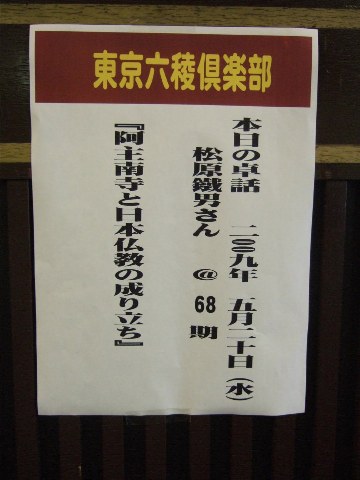 東京六稜倶楽部
本日の卓話 二〇〇九年 五月二十日(水)
松原鐵男さん @68期
『阿主南寺と日本仏教の成り立ち』